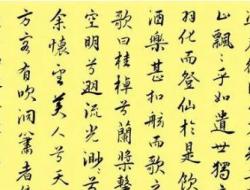 止飄〻乎如遺世獨立
羽化而登仙於是飲
酒樂甚扣舷而歌之
歌曰桂棹兮蘭槳擊
空明兮遡流光渺〻兮
余懷望美人兮天一
方客有吹洞簫者